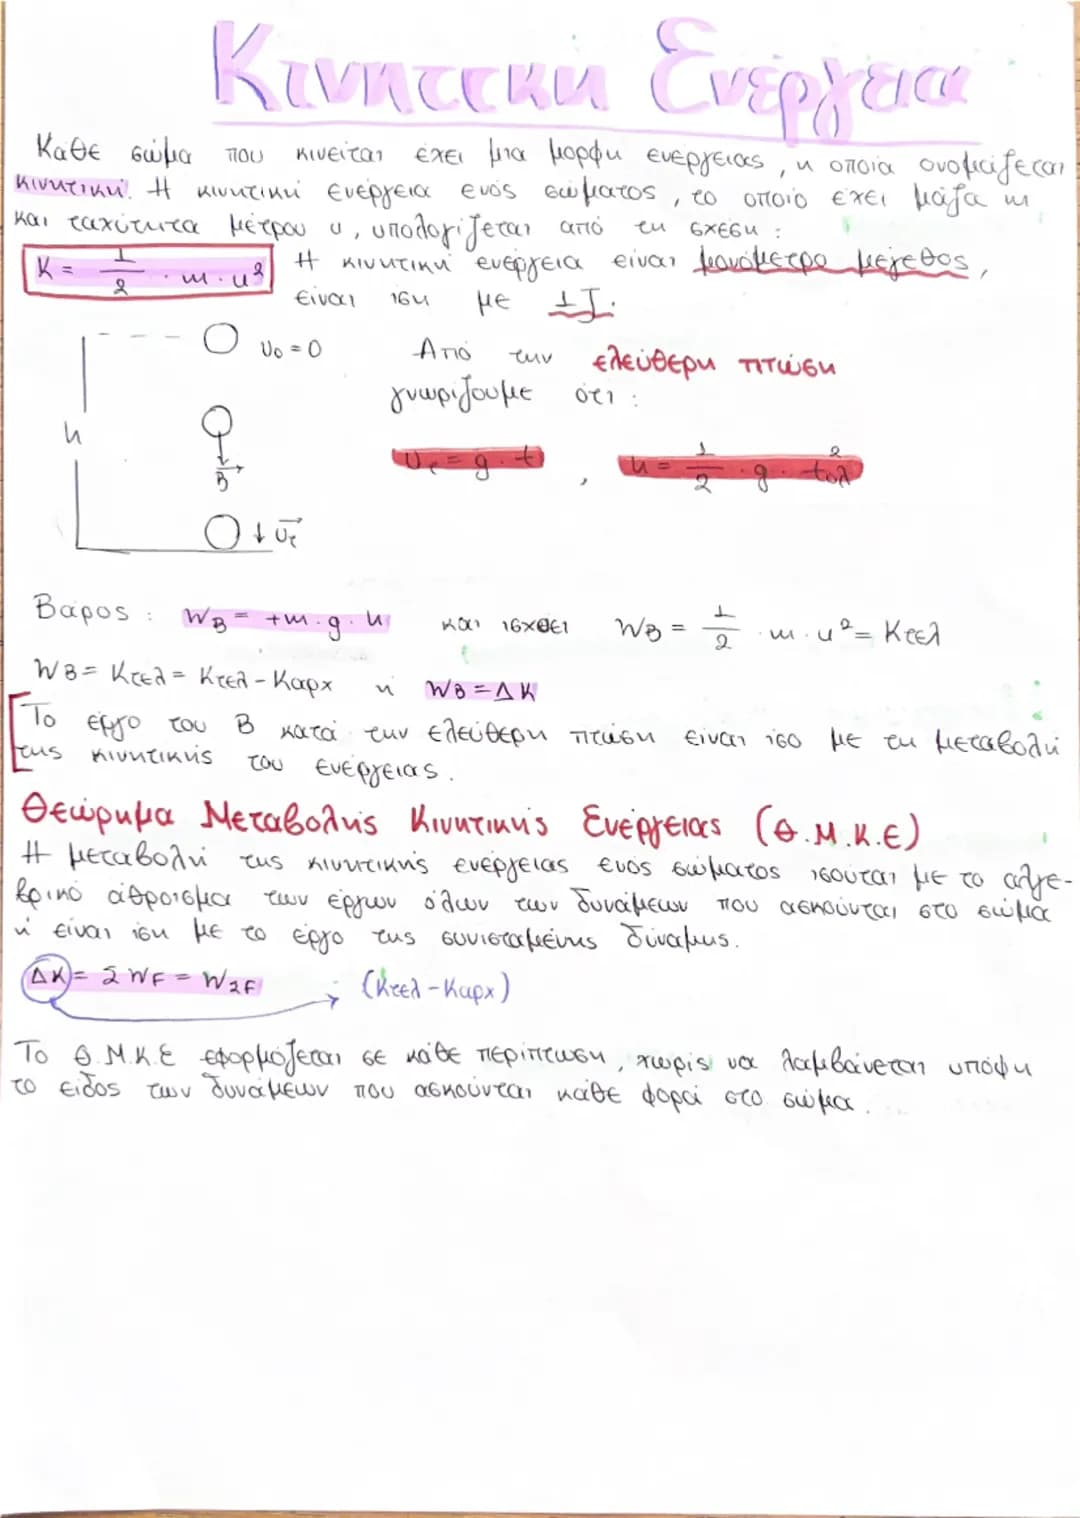 Κινητική Ενέργεια
Κάθε σώμα που κινείται έχει μια μορφή ενέργειας, η οποία ονομάζεται
κινητική. Η κινητική ενέργεια ενός σώματος, το οποίο έχει μάζα m
και ταχύτητα μέτρου υ, υπολογίζεται από τη σχέση:
K = 1/2 · m · υ² Η κινητική ενέργεια είναι μονόμετρο μέγεθος,
είναι ίση με 1J.
υ₀ = 0
Από την ελεύθερη πτώση
γνωρίζουμε ότι:
h
B
υτ = g · t , h = 1/2 · g · tολ²
↓ υτ
Βάρος: WB = +m · g · h και ισχύει WB = 1/2 · m · υ² = Κτελ
WB = Κτελ = Κτελ - Καρχ ή WB = ΔΚ
Το έργο του Β κατά την ελεύθερη πτώση είναι ίσο με τη μεταβολή
της κινητικής του ενέργειας.
Θεώρημα Μεταβολής Κινητικής Ενέργειας (Θ.Μ.Κ.Ε)
Η μεταβολή της κινητικής ενέργειας ενός σώματος ισούται με το αλγε-
βρικό άθροισμα των έργων όλων των δυνάμεων που ασκούνται στο σώμα
ή είναι ίση με το έργο της συνισταμένης δύναμης.
ΔΚ = ΣWF = WΣF (Κτελ - Καρχ)
Το Θ.Μ.Κ.Ε εφορμόζεται σε κάθε περίπτωση, χωρίς να λαμβάνεται υπόψη
το είδος των δυνάμεων που ασκούνται κάθε φορά στο σώμα.